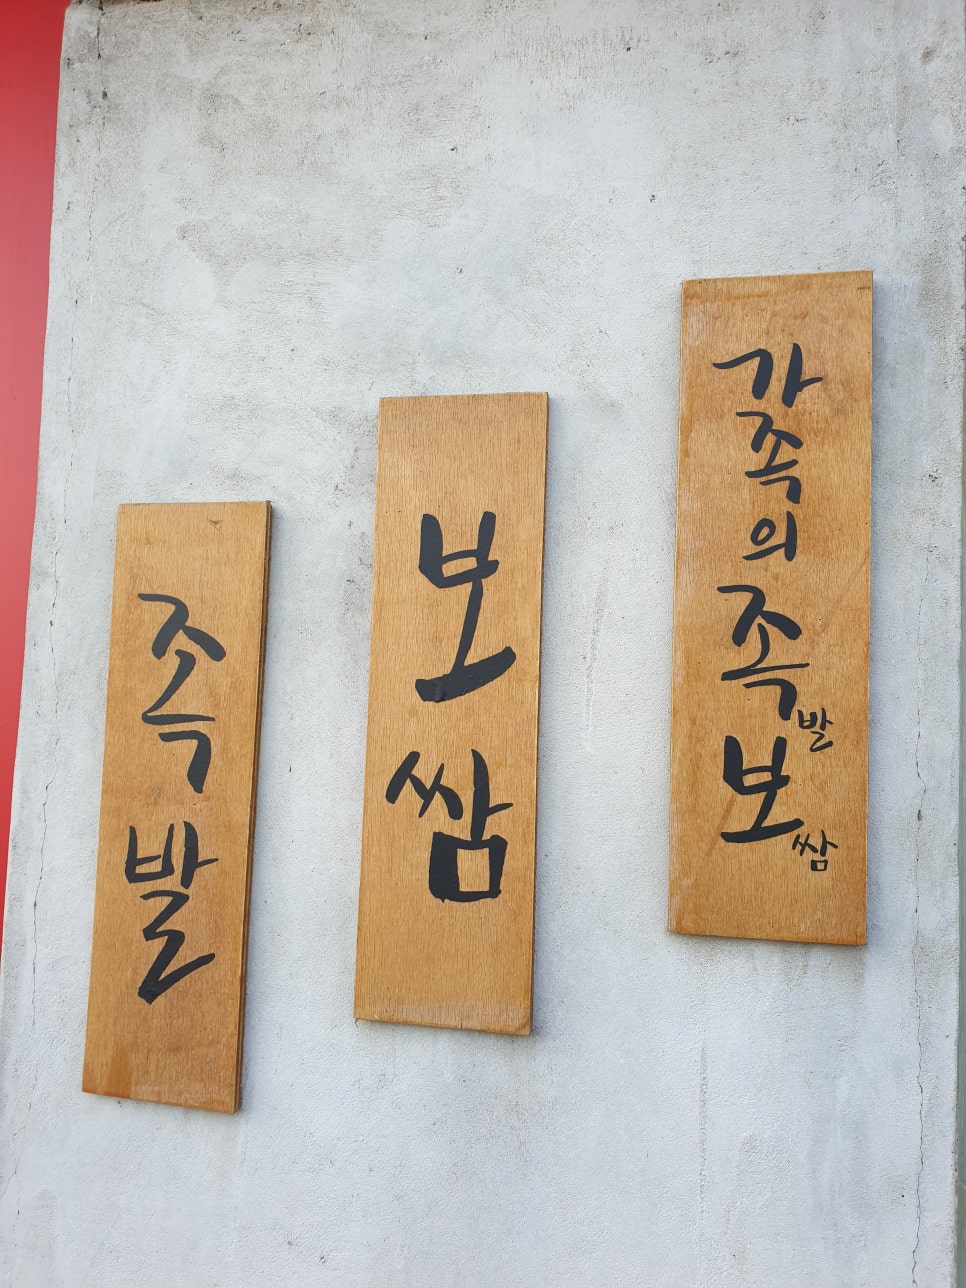 족발
보쌈
가족의 족발 보쌈